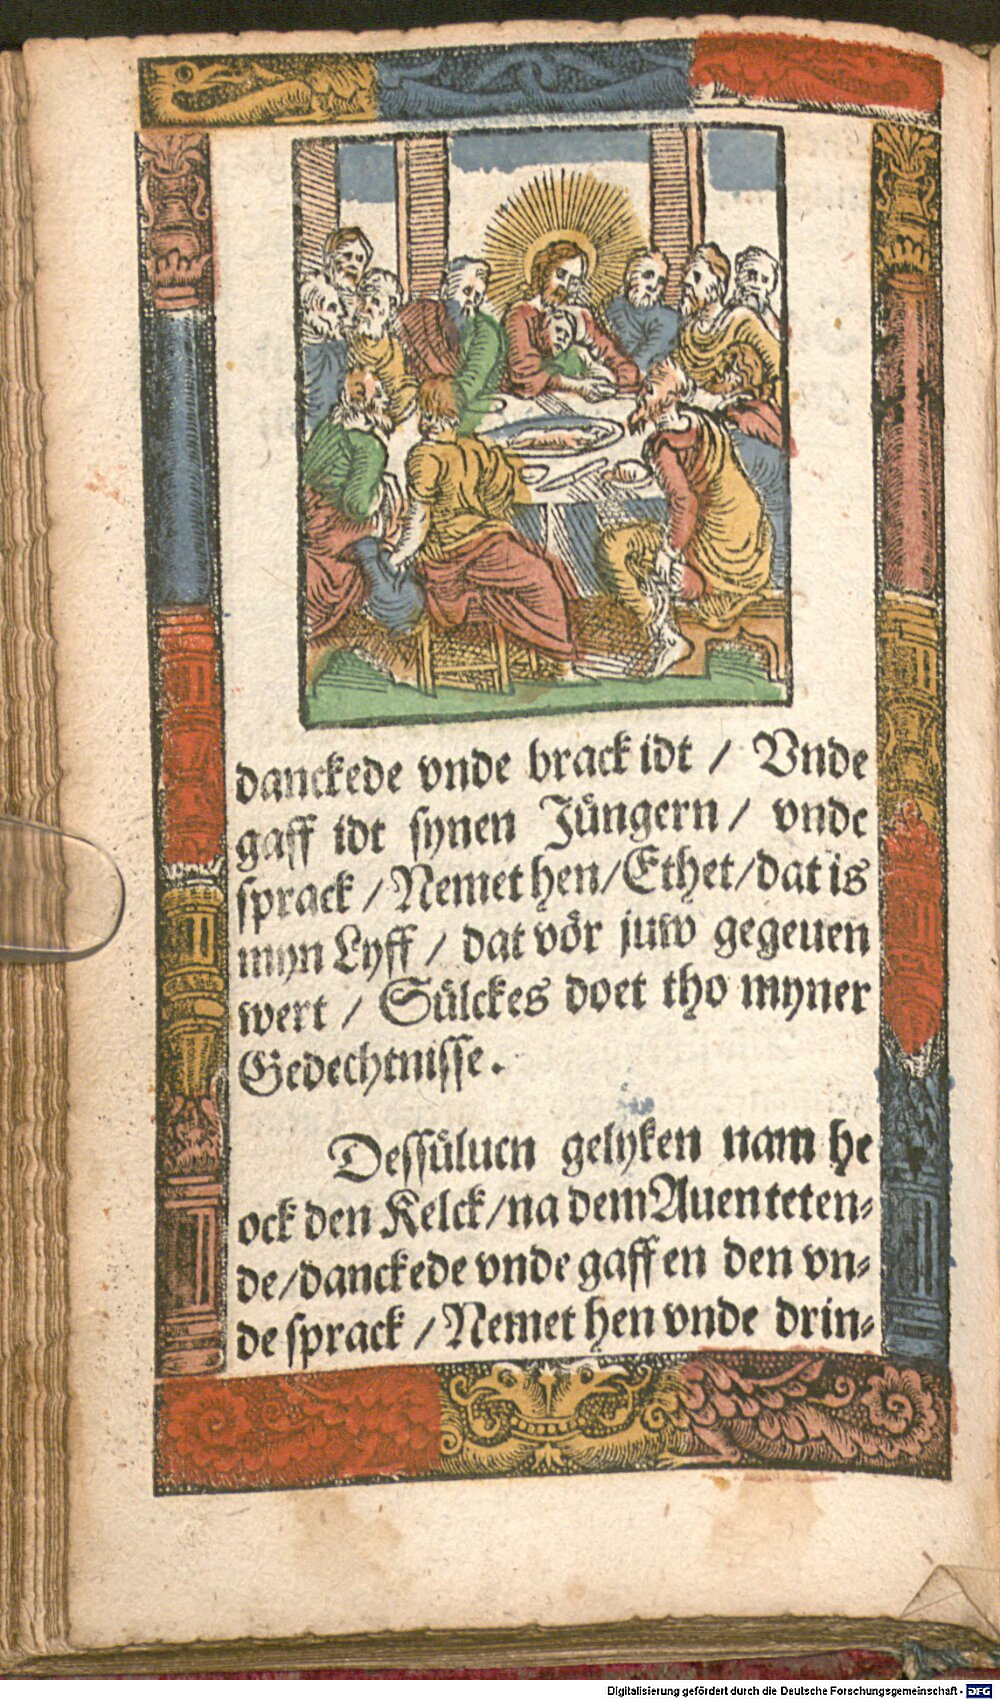 danckede vnde brack idt / Vnde
gaff idt synen Jüngern / vnde
sprack / Nemet hen/Ethet/dat is
myn Lyff / dat vör juw gegeuen
wert / Sülckes doet tho myner
Gedechtnisse.
Dessüluen gelyken nam he
ock den Kelck/na dem Auenteten-
de/danckede vnde gaff en den vn-
de sprack / Nemet hen vnde drin-
Digitalisierung gefördert durch die Deutsche Forschungsgemeinschaft - DFG